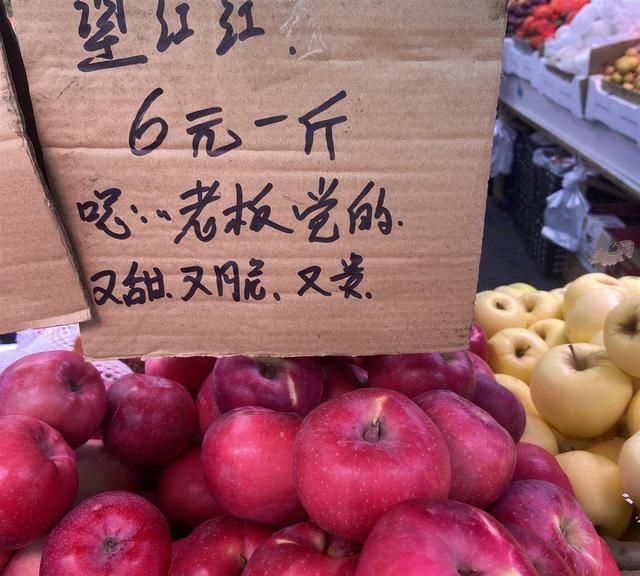 红红.
6元一斤
呃:..老板觉的.
又甜.又脆.又贵.